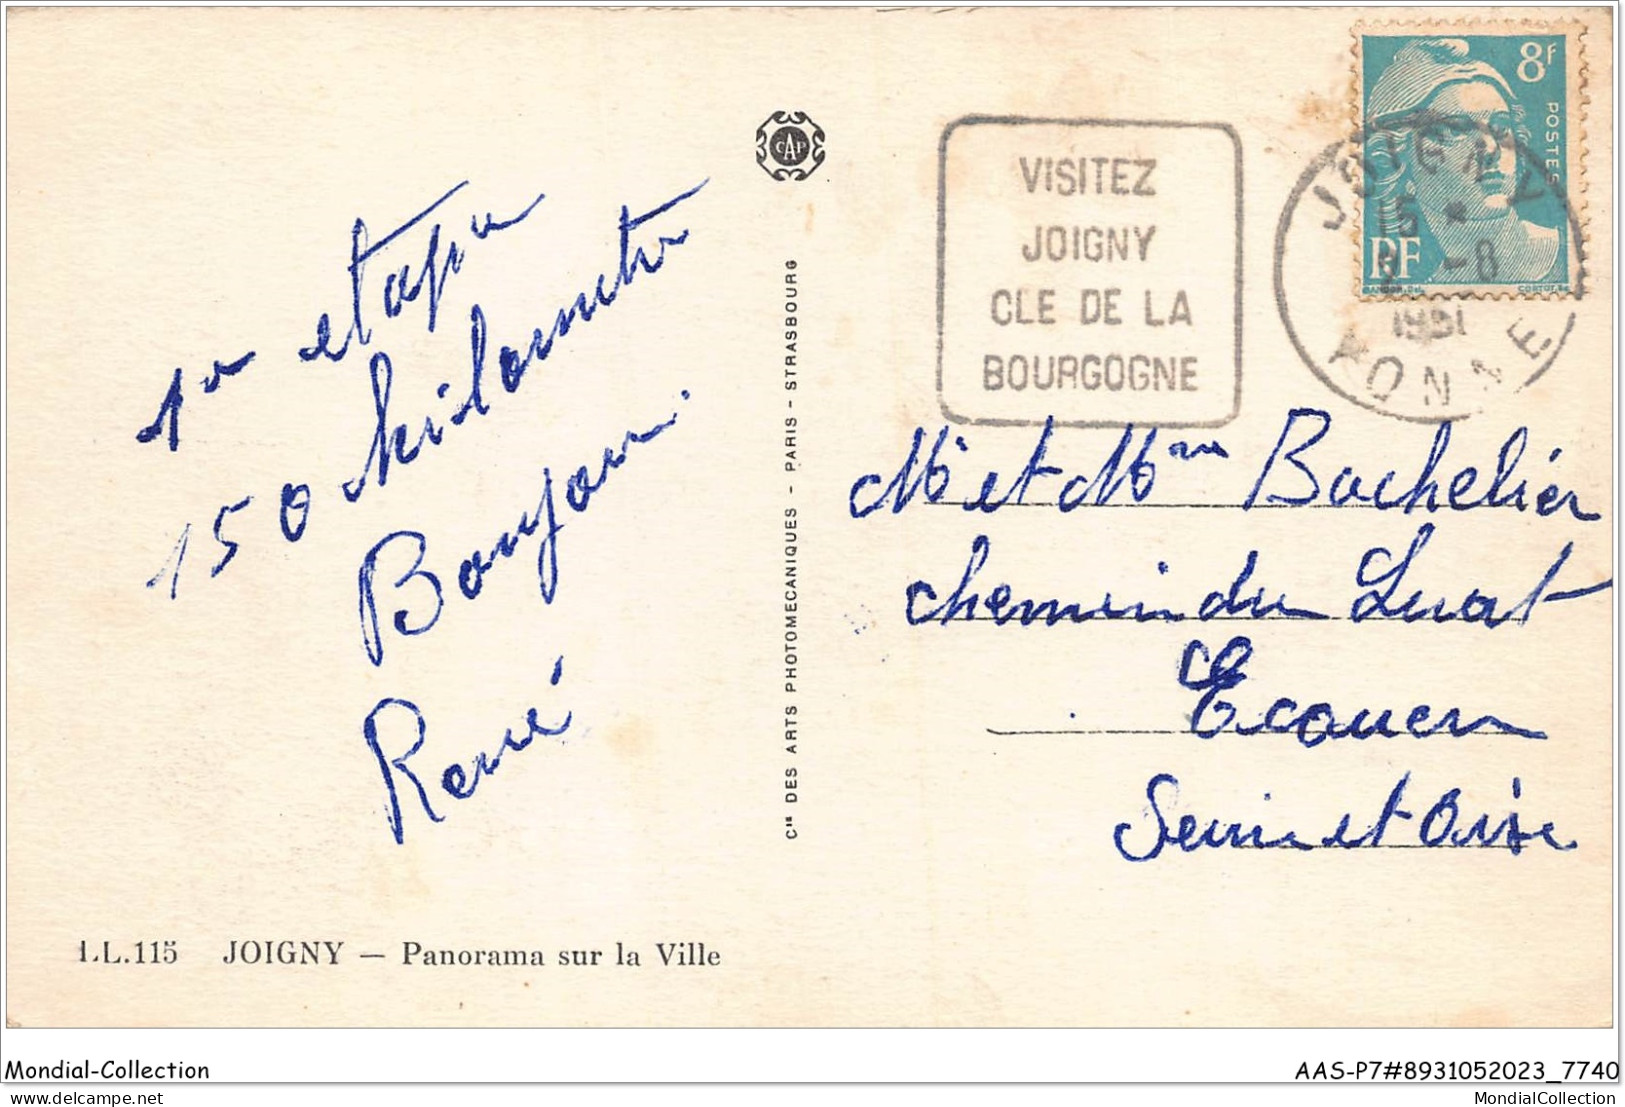 1re etape
150 kilometre
Bonjour.
René
LL.115 JOIGNY — Panorama sur la Ville
CAP
Cie DES ARTS PHOTOMECANIQUES - PARIS - STRASBOURG
VISITEZ
JOIGNY
CLE DE LA
BOURGOGNE
8f
POSTES
RF
JOIGNY
15 *
2 -8
1951
YONNE
Mr et Mme Bachelier
chemin du Luat
Ecouen
Seine et Oise
Mondial-Collection
AAS-P7#8931052023_7740
delcampe.net
MondialCollection